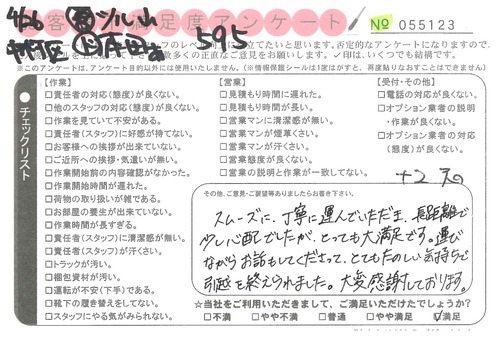 お客さま満足度アンケート
No 055123
595
※このアンケートは、アンケート目的以外には使用いたしません。(※情報保護シールは1度はがすと、再度貼りなおすことはできません)
チェックリスト
【作業】
□責任者の対応(態度)が良くない。
□他のスタッフの対応(態度)が良くない。
□作業を見ていて不安がある。
□責任者(スタッフ)に好感が持てない。
□お客様への挨拶が出来ていない。
□ご近所への挨拶・気遣いが無い。
□作業開始前の内容確認がなかった。
□作業開始時間が遅れた。
□荷物の取り扱いが雑である。
□お部屋の養生が出来ていない。
□作業時間が長すぎる。
□責任者(スタッフ)に清潔感が無い。
□責任者(スタッフ)が汗くさい。
□トラックが汚い。
□梱包資材が汚い。
□運転が不安(下手)である。
□靴下の履き替えをしてない。
□スタッフにやる気がみられない。
【営業】
□見積もり時間に遅れた。
□見積もり時間が長い。
□営業マンに清潔感が無い。
□営業マンが煙草くさい。
□営業マンが汗くさい。
□営業態度が良くない。
□営業の説明と作業が一致してない。
【受付・その他】
□電話の対応が良くない。
□オプション業者の説明・作業が良くない。
□オプション業者の対応(態度)が良くない。
その他、ご意見・ご要望等ありましたらお書き下さい。
スムーズに、丁寧に運んでいただき、長距離で
少し心配でしたが、とっても大満足です。運び
ながらお話もしてくださって、とてもたのしい気持ちで
引越を終えられました。大変感謝しております。
☆当社をご利用いただきまして、ご満足いただけたでしょうか?
□不満 □やや不満 □普通 □やや満足 ☑満足